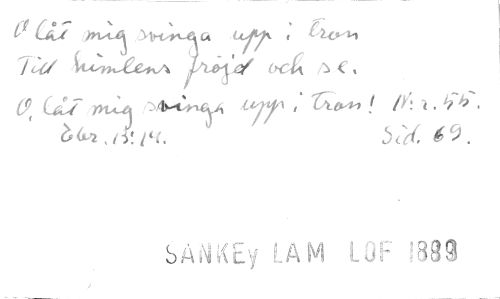 O låt mig svinga upp i tron
Till himlens fröjd och se.
O, låt mig svinga upp i tron! N:r. 55.
Ebr. 13:14. Sid. 69.
SANKEY LAM LOF 1889